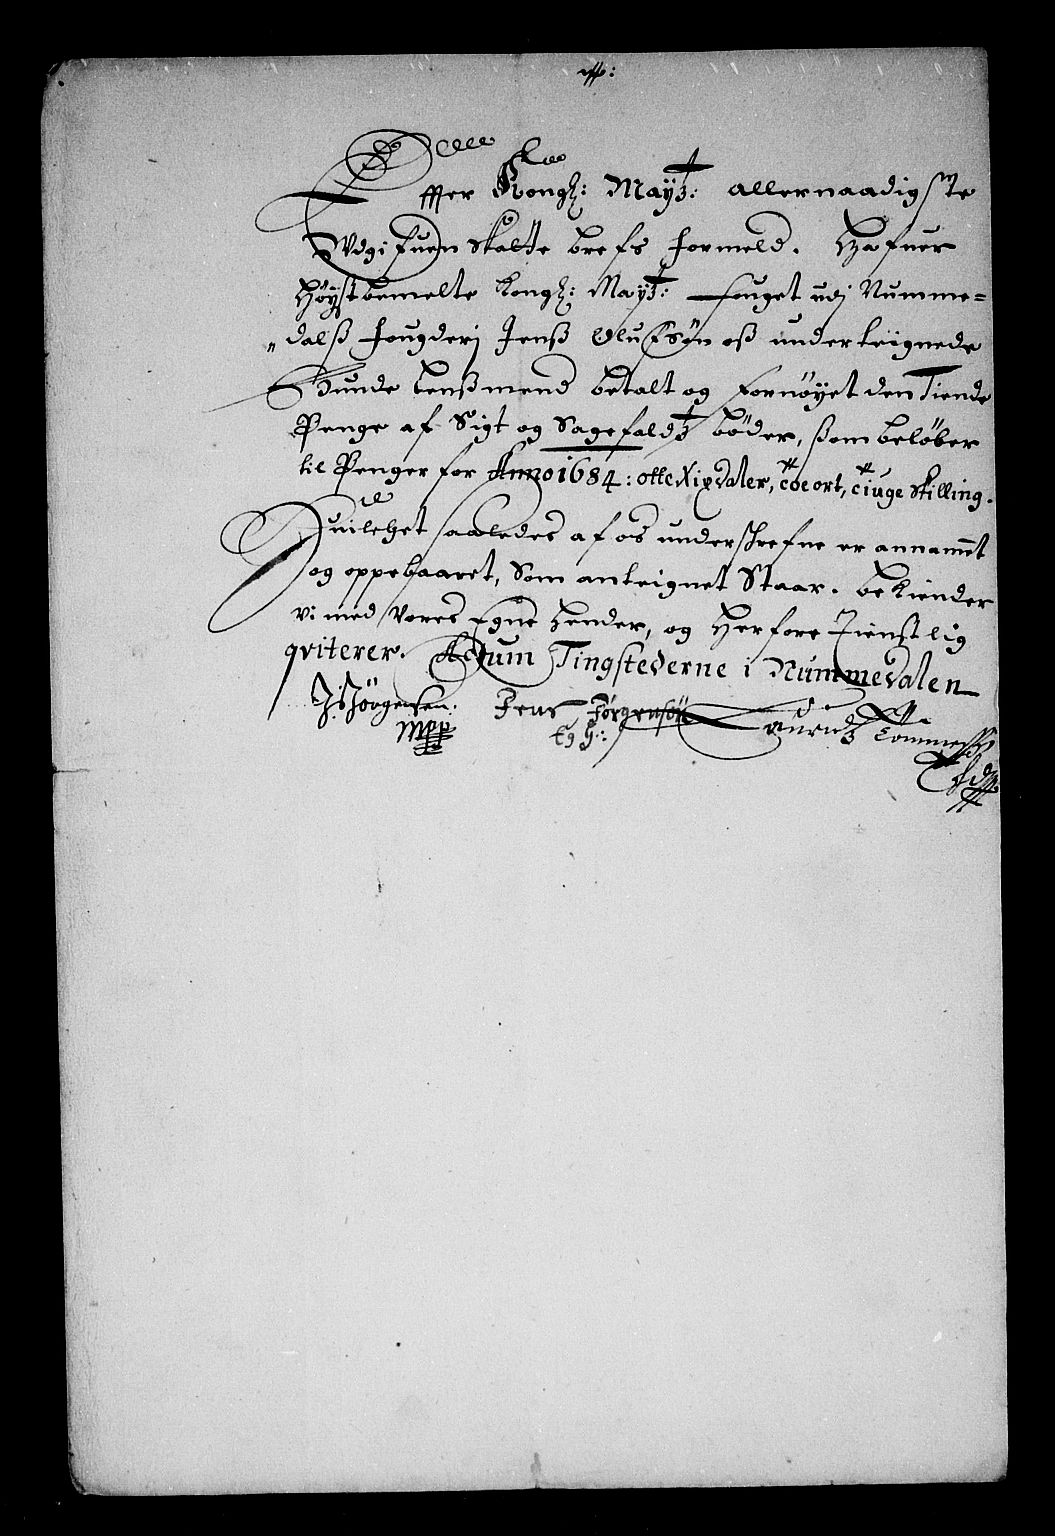 Effter Kongl: Maytz: allernaadigste
Udgifuen Skatte brefs formeld. Hafuer
Høystbemelte Kongl: Maytz: fouget udj Numme=
„ dalß fougderj Jenß Olufsøn oß underteignede
Bunde Lenßmend betalt og fornøyet den Tiende
Penge af Sigt og Sagefaldtz bøder, ßom beløber
til Penger for Anno 1684: otte Rixdaler, toe ort, tiuge skilling.
Huilchet saaledes af os underschrefne er annammet
og oppebaaret, som anteignet Staar. bekiender
vi med Vores Egne Hender, og Herfore Tienstlig
qviterer. Actum Tingstederne i Nummedalen
Js Jörgensen. Jens Jørgensøn Lauridtz Tommess
Mpp Eg H: